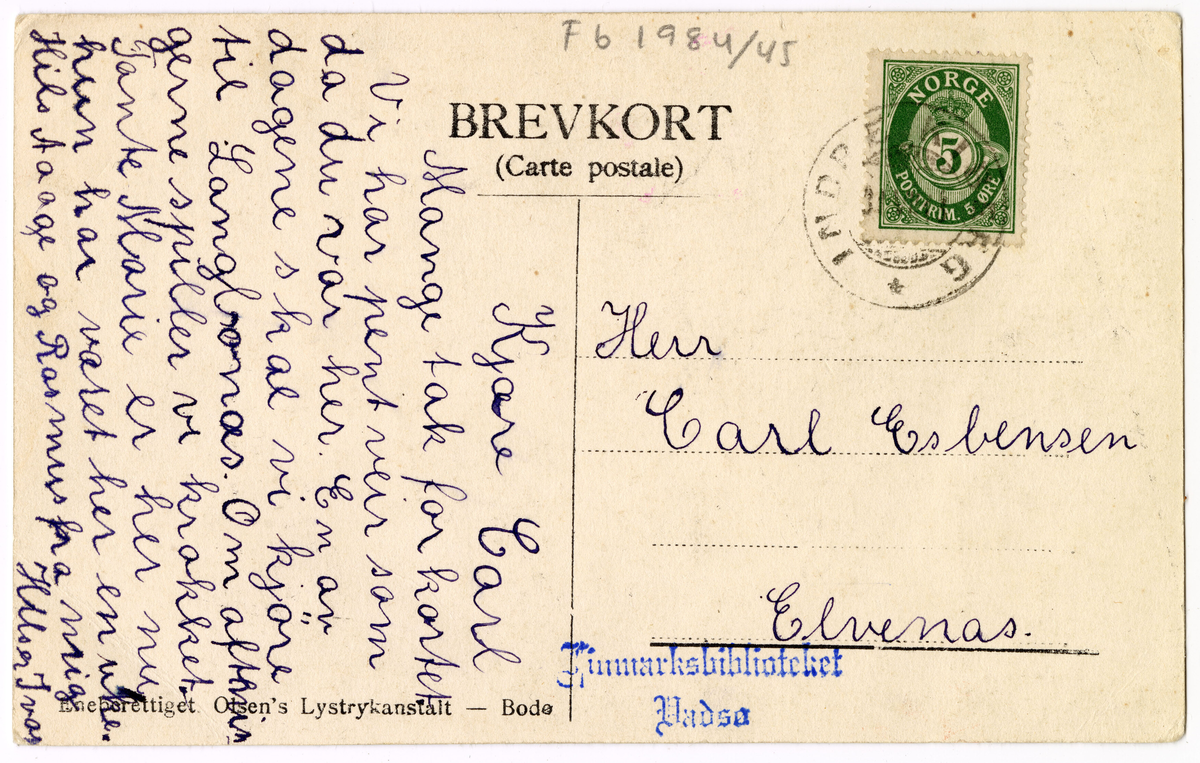 F b 1984/45
BREVKORT
(Carte postale)
NORGE
5
POSTFRIM. 5 ØRE
Kjære Carl
Mange tak for kortet
Vi har pent veir som
da du var her. En av
dagene skal vi kjöre
til Langbonæs. Om aftnin
gerne spiller vi krokket.
Tante Marie er her nu
hun har været her en uke.
Hils Aage og Rasmus fra mig
Hilser Ivar
Herr
Carl Esbensen
Elvenas.
Finmarksbiblioteket
Vadsø
Eneberettiget Olsen's Lystrykanstalt — Bodø